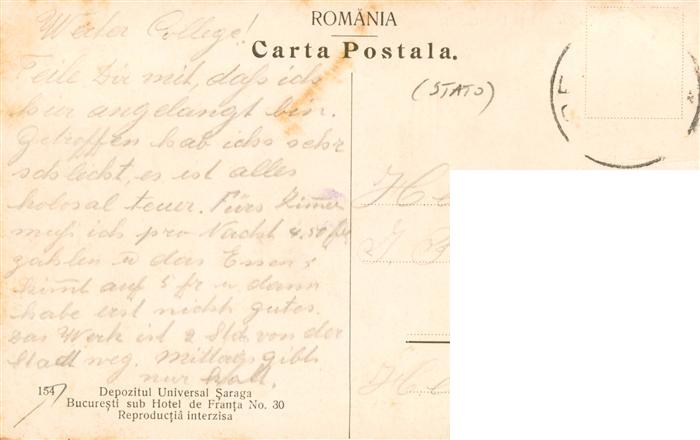 ROMÂNIA
Carta Postala.
(STATO)
Werter College!
Teile Dir mit, daß ich
hier angelangt bin.
Getroffen hab ichs sehr
schlecht, es ist alles
kolosal teuer. Fürs Zimmer
muß ich pro Nacht 4.50 fr
zahlen u das Essen
kommt auf 5 fr u. dann
habe erst nicht gutes.
Das Werk ist 2 Std. von der
Stadt weg. Mittags gibts
nur kalt.
154
Depozitul Universal Șaraga
București sub Hotel de Franța No. 30
Reproducțiă interzisa